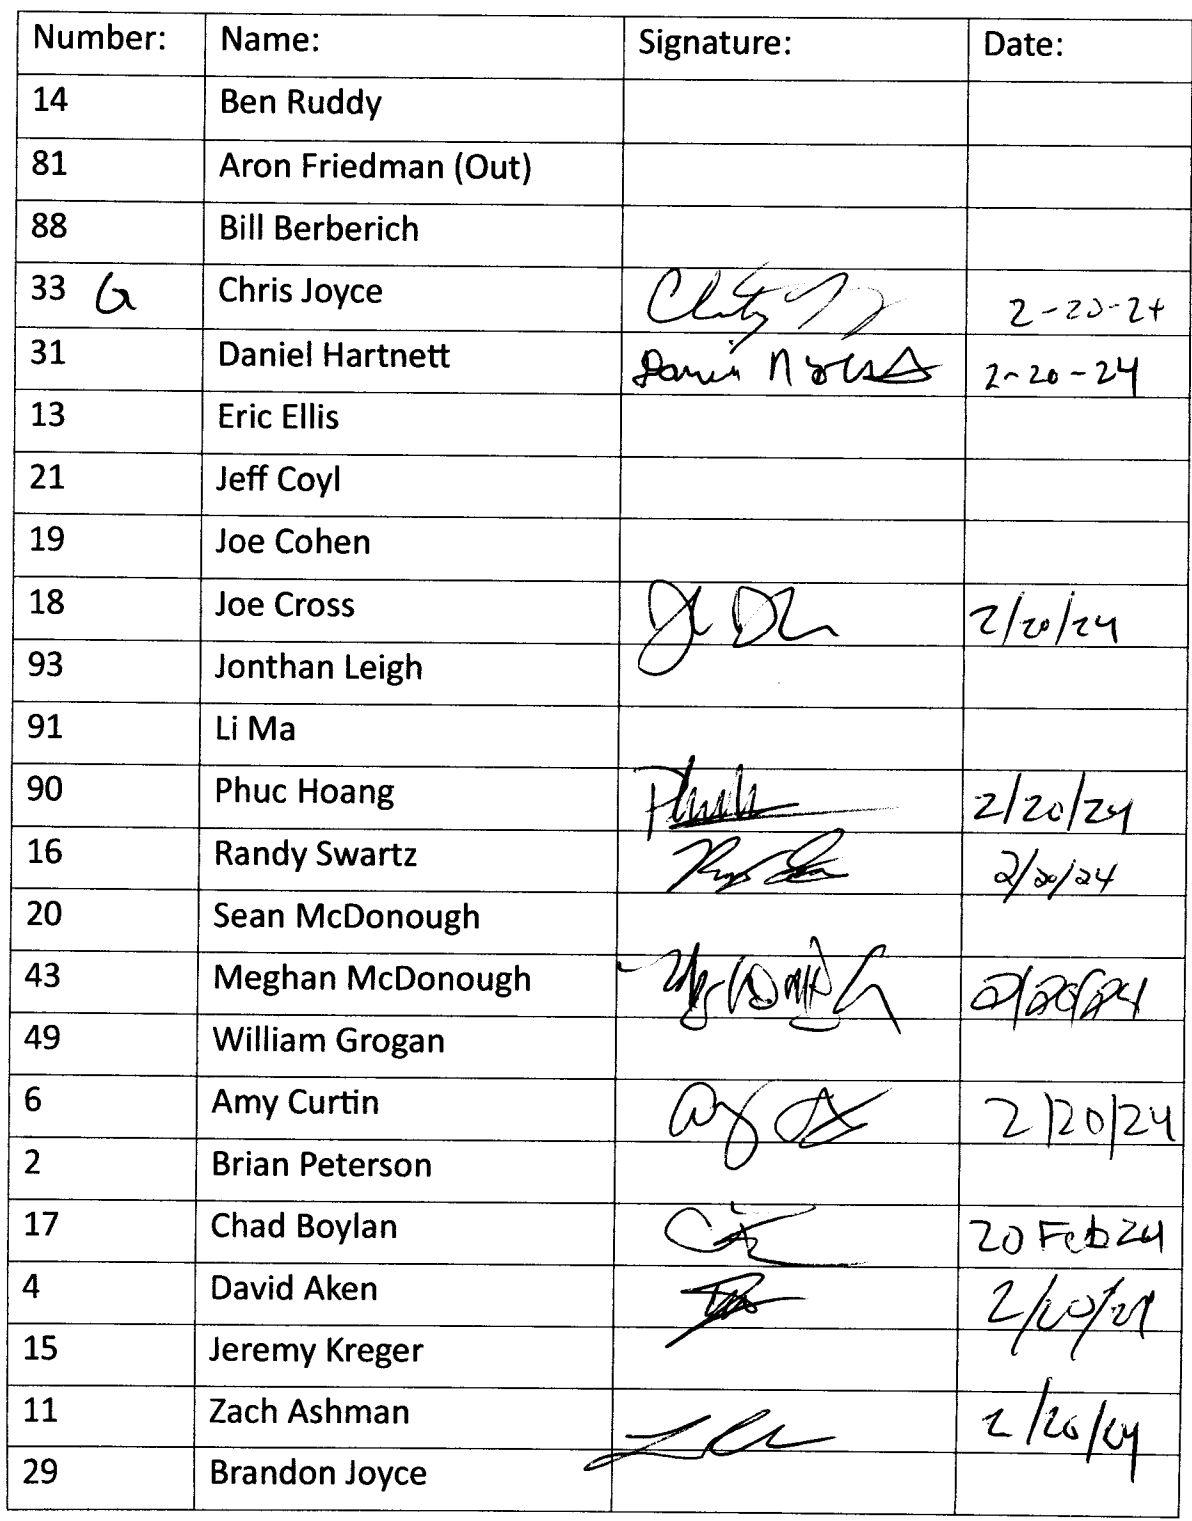 Number: Name: Signature: Date:
14 Ben Ruddy
81 Aron Friedman (Out)
88 Bill Berberich
33 G Chris Joyce 2-20-24
31 Daniel Hartnett 2-20-24
13 Eric Ellis
21 Jeff Coyl
19 Joe Cohen
18 Joe Cross 2/20/24
93 Jonthan Leigh
91 Li Ma
90 Phuc Hoang 2/20/24
16 Randy Swartz 2/20/24
20 Sean McDonough
43 Meghan McDonough 2/20/24
49 William Grogan
6 Amy Curtin 2/20/24
2 Brian Peterson
17 Chad Boylan 20 Feb 24
4 David Aken 2/20/24
15 Jeremy Kreger
11 Zach Ashman 2/20/24
29 Brandon Joyce